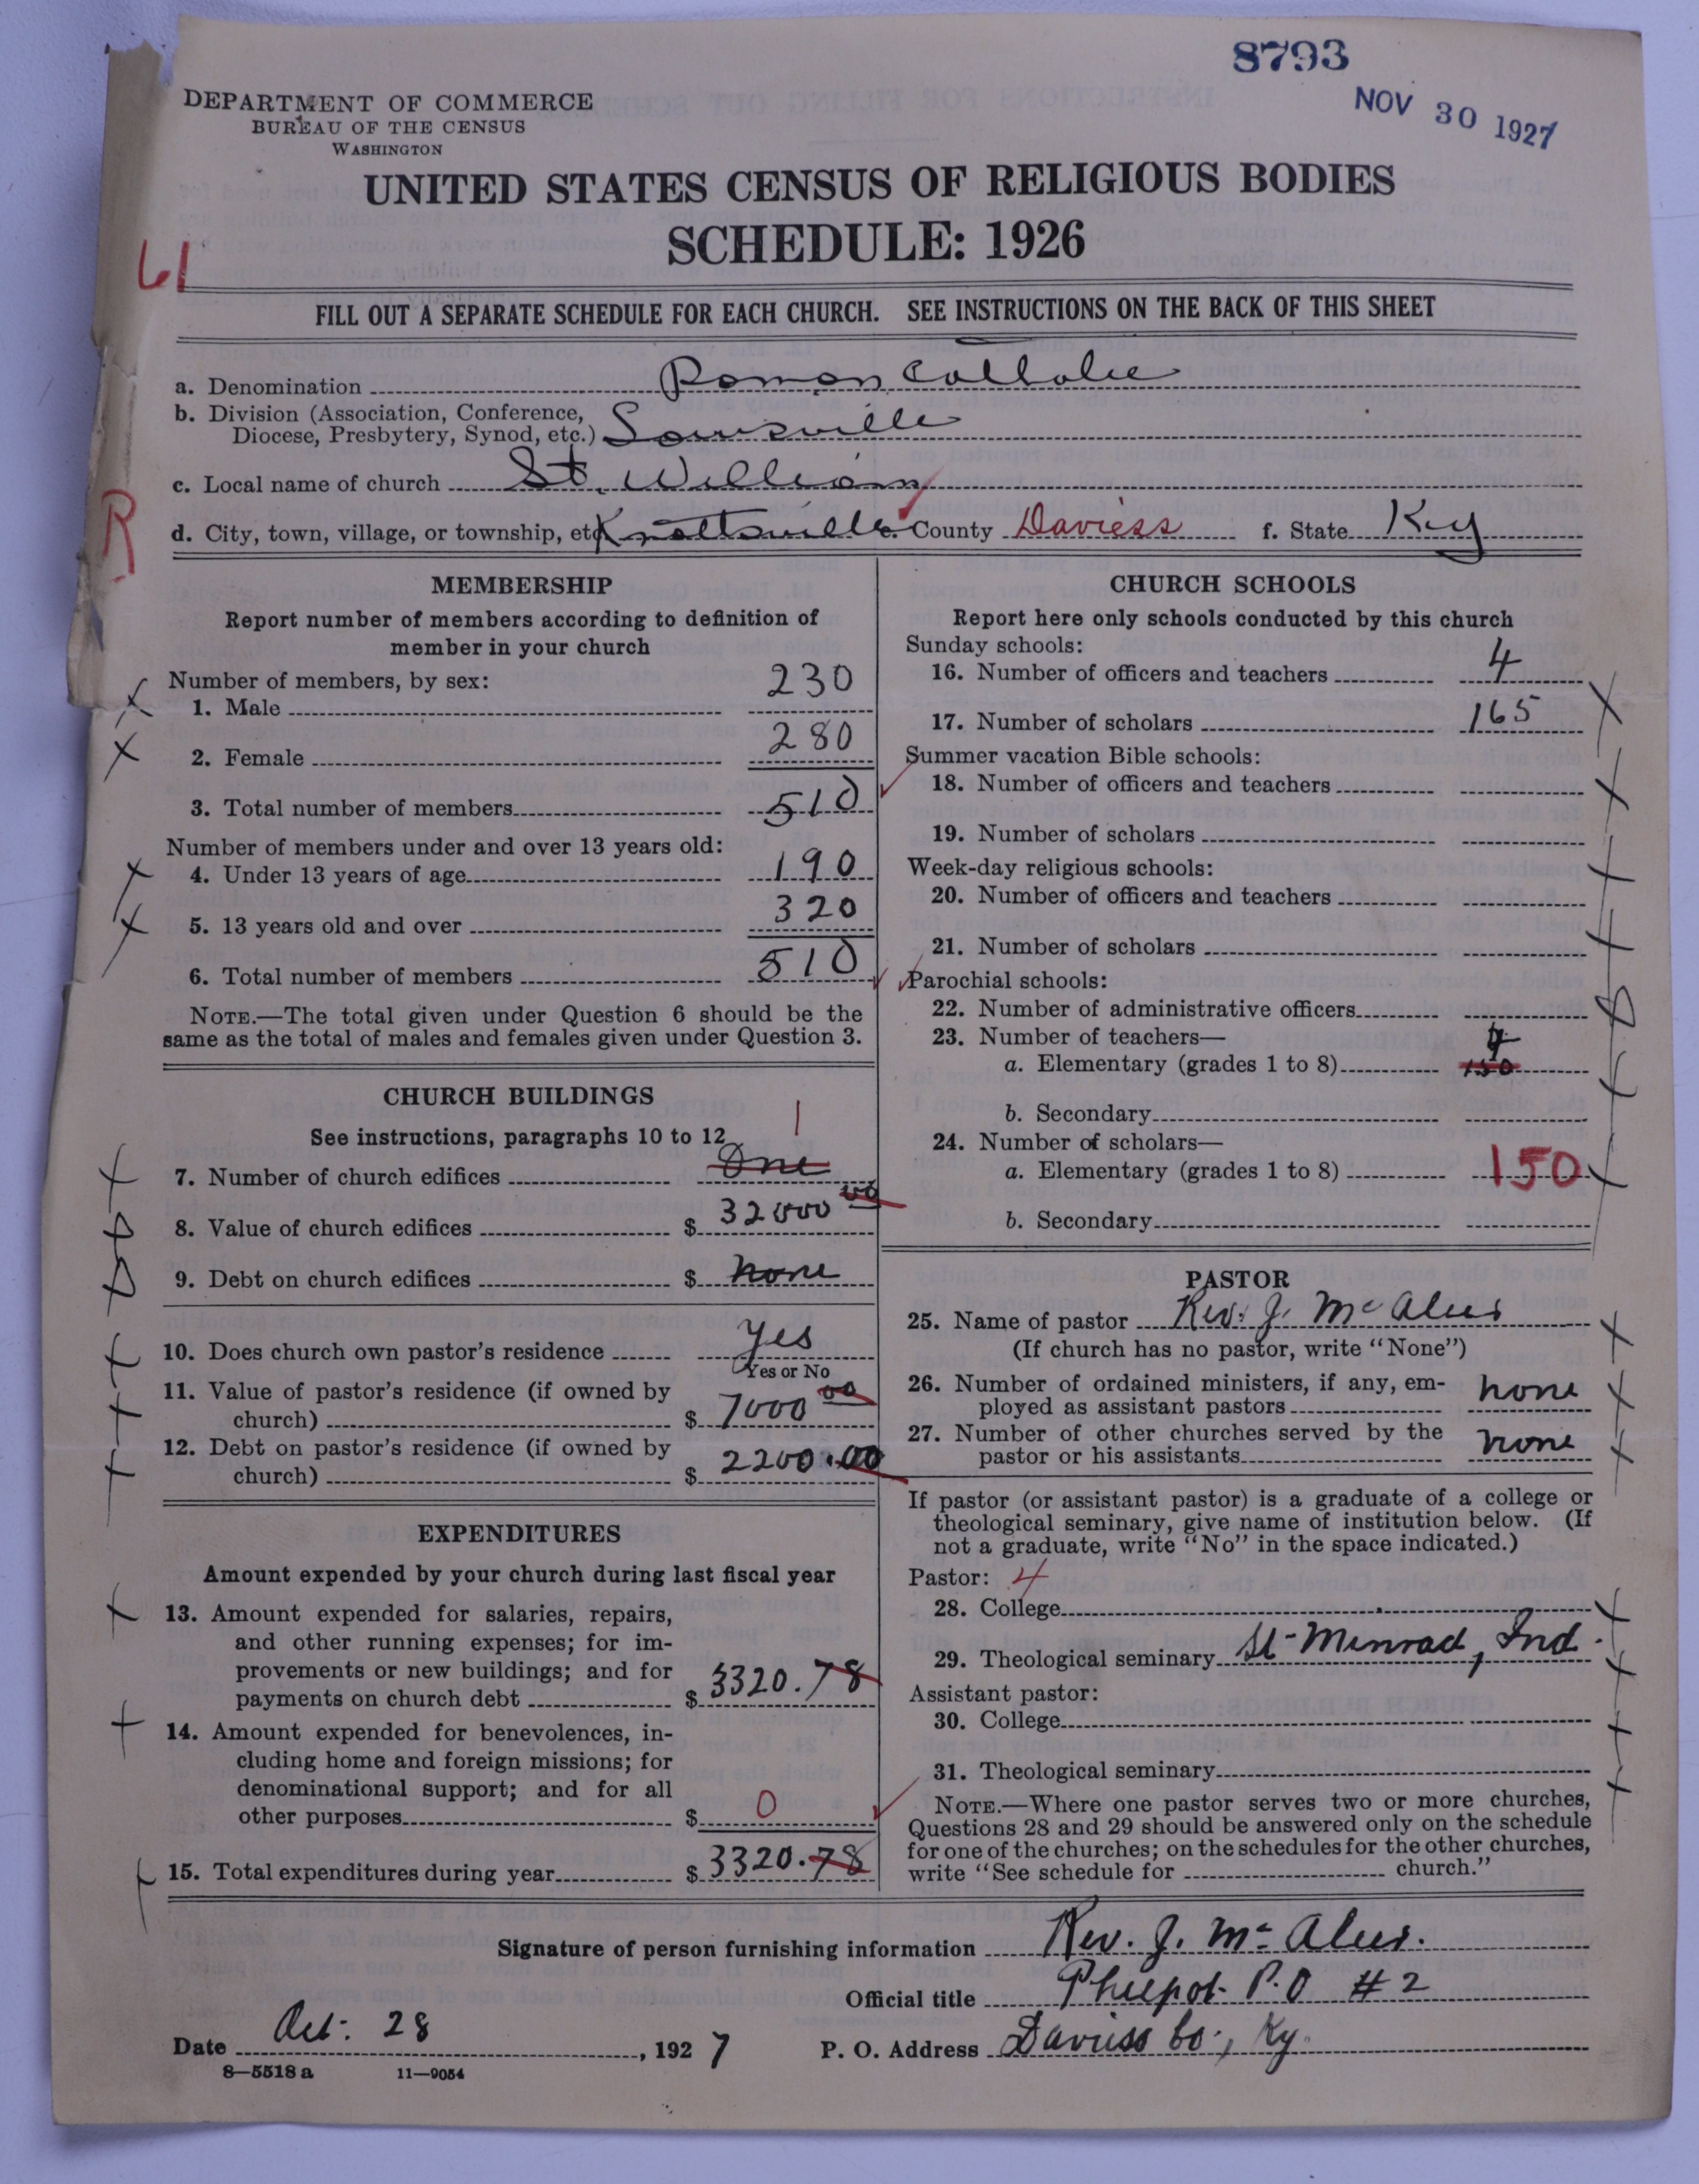 8793
NOV 30 1927
DEPARTMENT OF COMMERCE
BUREAU OF THE CENSUS
WASHINGTON
UNITED STATES CENSUS OF RELIGIOUS BODIES
SCHEDULE: 1926
61
FILL OUT A SEPARATE SCHEDULE FOR EACH CHURCH. SEE INSTRUCTIONS ON THE BACK OF THIS SHEET
a. Denomination Roman Catholic
b. Division (Association, Conference, Diocese, Presbytery, Synod, etc.) Louisville
c. Local name of church St. William
R
d. City, town, village, or township, etc. Knottsville e. County Daviess f. State Ky
MEMBERSHIP
Report number of members according to definition of
member in your church
Number of members, by sex:
1. Male 230
2. Female 280
3. Total number of members 510
Number of members under and over 13 years old:
4. Under 13 years of age 190
5. 13 years old and over 320
6. Total number of members 510
NOTE.—The total given under Question 6 should be the
same as the total of males and females given under Question 3.
CHURCH BUILDINGS
See instructions, paragraphs 10 to 12
1
7. Number of church edifices One
8. Value of church edifices $ 32000 00
9. Debt on church edifices $ none
10. Does church own pastor's residence yes
Yes or No
11. Value of pastor's residence (if owned by
church) $ 7000 00
12. Debt on pastor's residence (if owned by
church) $ 2200.00
EXPENDITURES
Amount expended by your church during last fiscal year
13. Amount expended for salaries, repairs,
and other running expenses; for im-
provements or new buildings; and for
payments on church debt $ 3320.78
14. Amount expended for benevolences, in-
cluding home and foreign missions; for
denominational support; and for all
other purposes $ 0
15. Total expenditures during year $ 3320.78
CHURCH SCHOOLS
Report here only schools conducted by this church
Sunday schools:
16. Number of officers and teachers 4
17. Number of scholars 165
Summer vacation Bible schools:
18. Number of officers and teachers
19. Number of scholars
Week-day religious schools:
20. Number of officers and teachers
21. Number of scholars
Parochial schools:
22. Number of administrative officers
23. Number of teachers—
4
a. Elementary (grades 1 to 8) 150
b. Secondary
24. Number of scholars—
a. Elementary (grades 1 to 8) 150
b. Secondary
PASTOR
25. Name of pastor Rev. J. Mc
(If church has no pastor, write "None")
26. Number of ordained ministers, if any, em-
ployed as assistant pastors none
27. Number of other churches served by the
pastor or his assistants none
If pastor (or assistant pastor) is a graduate of a college or
theological seminary, give name of institution below. (If
not a graduate, write "No" in the space indicated.)
Pastor: 4
28. College
29. Theological seminary St-Meinrad, Ind.
Assistant pastor:
30. College
31. Theological seminary
NOTE.—Where one pastor serves two or more churches,
Questions 28 and 29 should be answered only on the schedule
for one of the churches; on the schedules for the other churches,
write "See schedule for church."
Signature of person furnishing information Rev. J. Mc
Official title Philpot P.O #2
Date Oct. 28, 1927 P. O. Address Daviess Co., Ky.
8—5518 a 11—9054